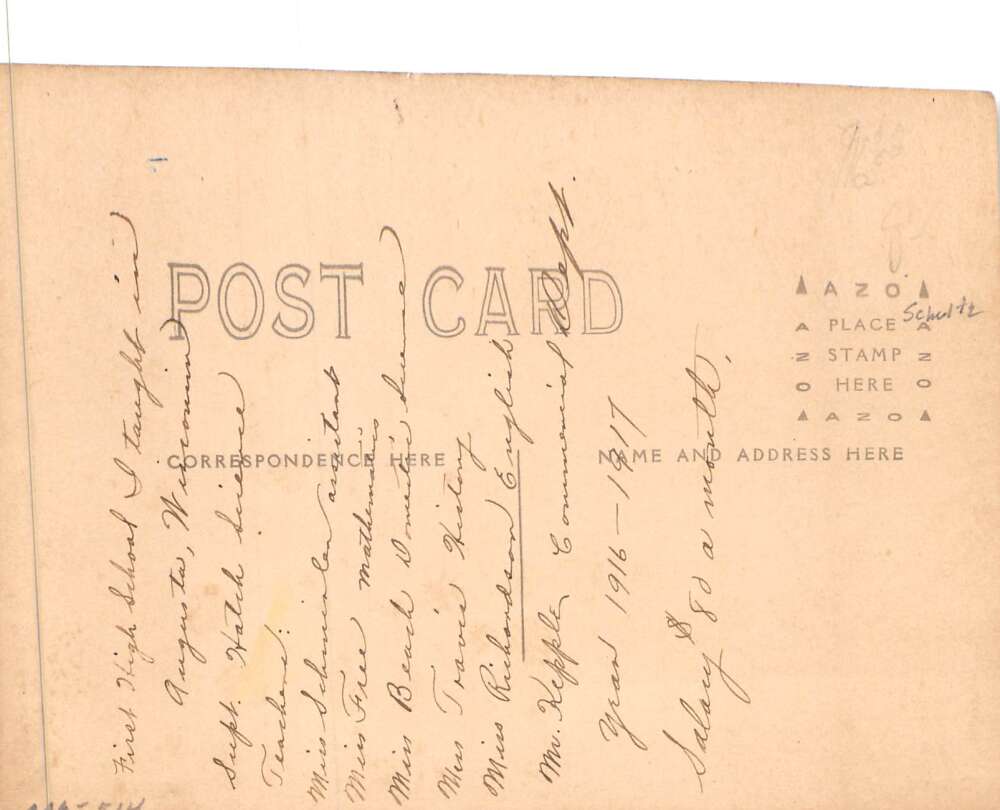 First High School I taught in
Augusta, Wisconsin
Supt. Hatch Science
Teachers:
Miss Schmirler assistant
Miss Free Mathematics
Miss Beach Domestic Science
Miss Travis History
Miss Richardson English
Mr. Kepple Commercial Dept.
Year 1916-1917
Salary $80 a month.
POST CARD
CORRESPONDENCE HERE
NAME AND ADDRESS HERE
AZO
PLACE
STAMP
HERE
AZO
Schultz